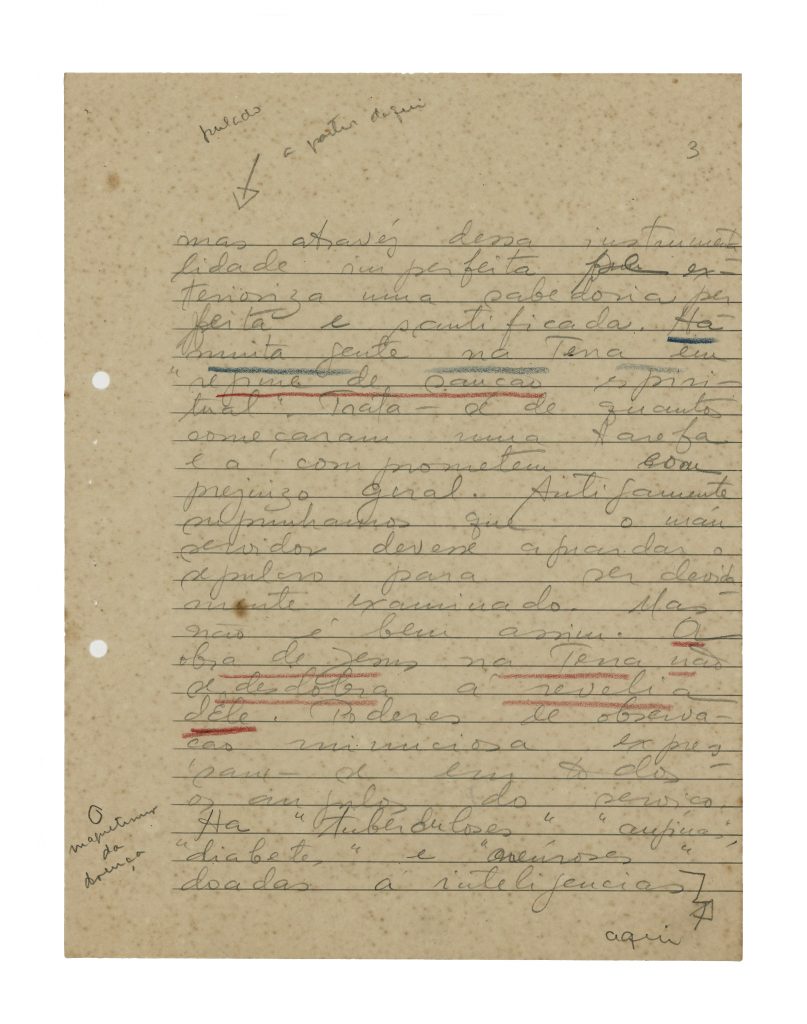 pulado
a partir daqui
3
mas através dessa instrumenta
lidade imperfeita ex-
terioriza uma sabedoria per
feita e santificada. Há
muita gente na Terra em
"regime de sancao espiri-
tual". Trata-se de quantos
começaram uma tarefa
e a comprometem com
prejuizo geral. Antigamente
supunhamos que o máu
servidor devesse aguardar o
sepulcro para ser devida
mente examinado. Mas
não é bem assim. A
obra de Jesus na Terra não
se desdobra á revelia
dEle. Poderes de observa-
cão minuciosa expres
sam-se em todos
os angulos do serviço.
Ha "tuberculoses" "anginas",
"diabete," e "neuroses"
doadas á inteligencias
O
magnetismo
da
doença
aqui